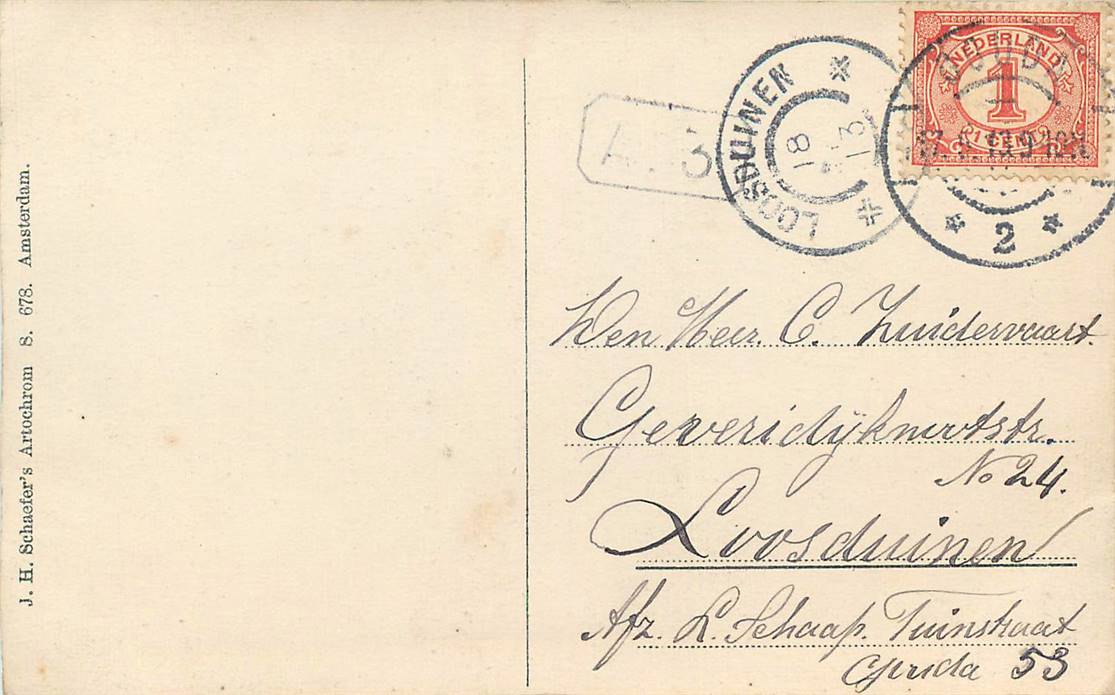 J. H. Schaefer's Artochrom S. 678. Amsterdam.
LOOSDUINEN
18
13
NEDERLAND
1
1 CENT
GOUDA
2
Den Heer. C. Zuidervaart.
Geveridijknootstr.
No 24.
Loosduinen
Afz. L. Schaap. Tuinstraat
Gouda 53